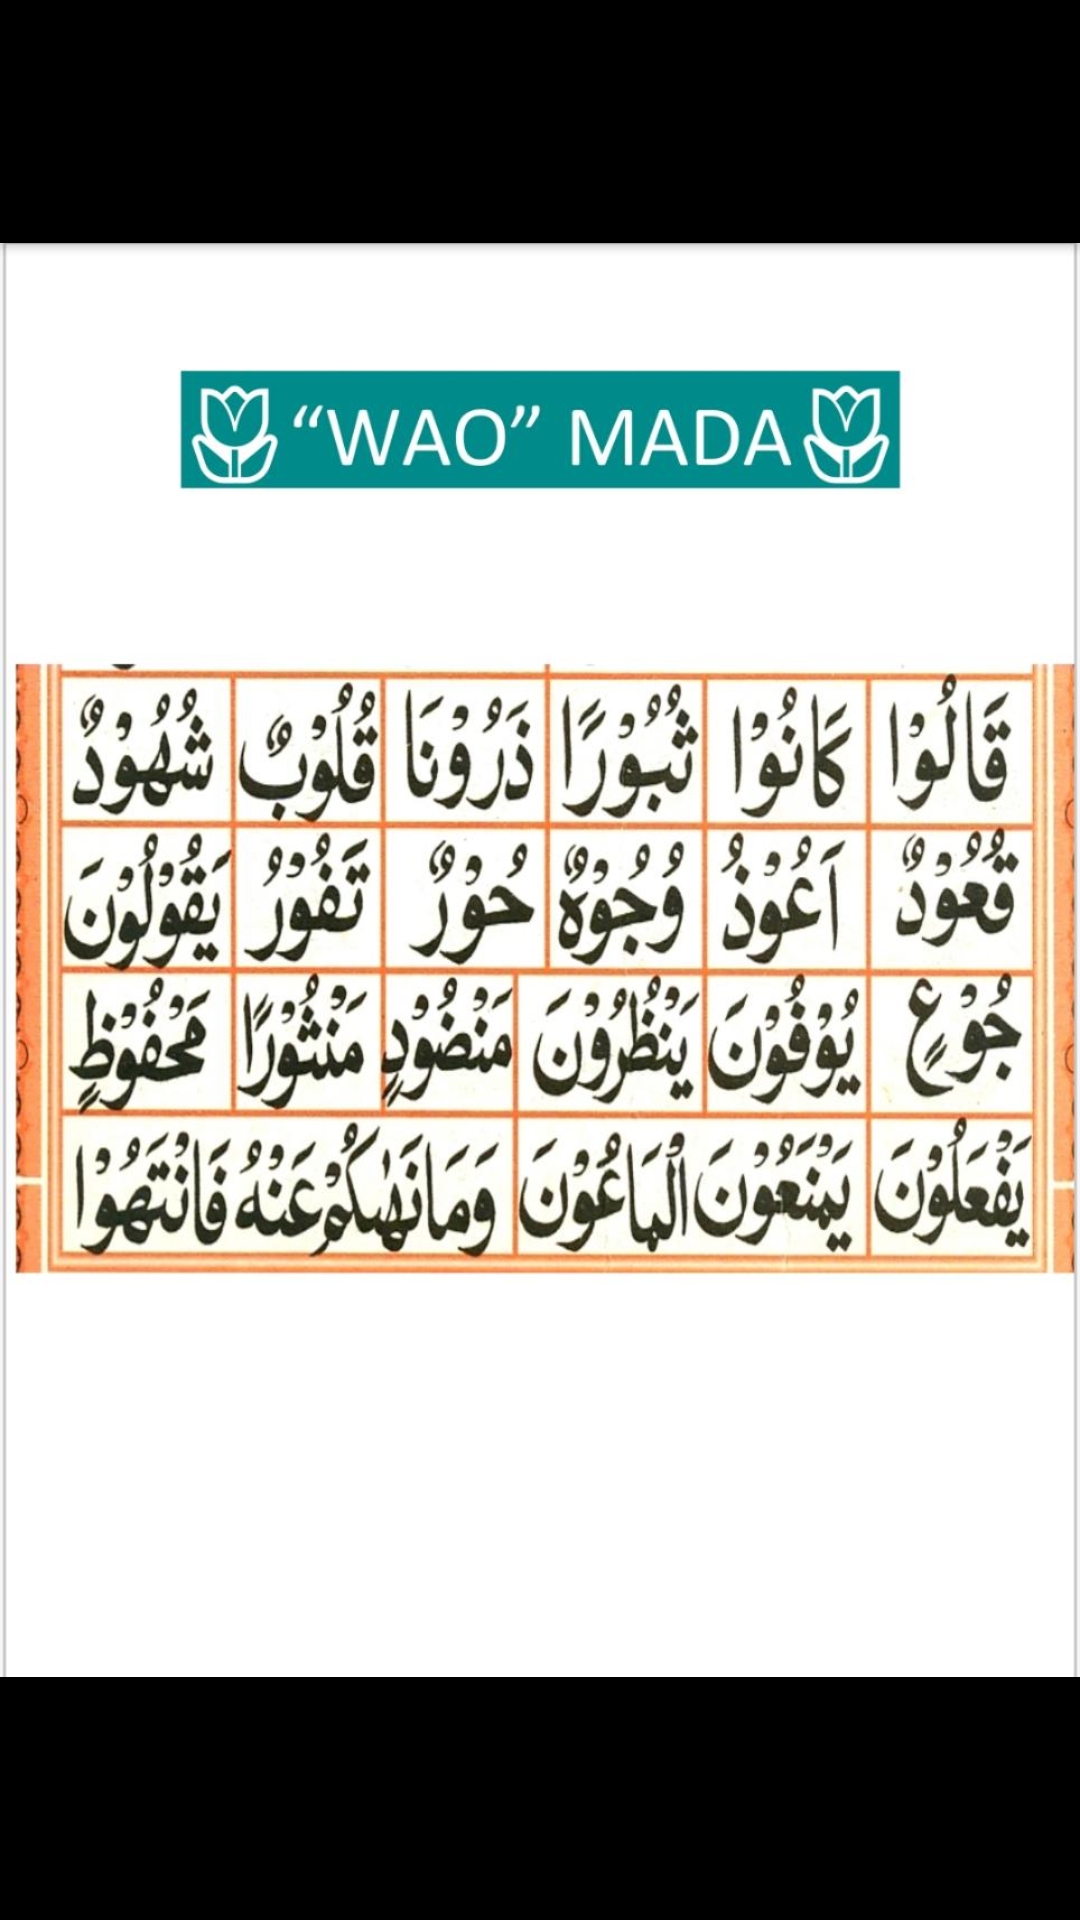 “WAO” MADA
قَالُوْا كَانُوْا ثُبُوْرًا ذَرُوْنَا قُلُوْبٌ شُهُوْدٌ
قُعُوْدٌ اَعُوْذُ وُجُوْهٌ حُوْرٌ تَفُوْرُ يَقُوْلُوْنَ
جُوْعٍ يُوْفُوْنَ يَنْظُرُوْنَ مَنْضُوْدٍ مَنْثُوْرًا مَحْفُوْظٍ
يَفْعَلُوْنَ يَمْنَعُوْنَ الْمَاعُوْنَ وَمَا نَهٰىكُمْ عَنْهُ فَانْتَهُوْا